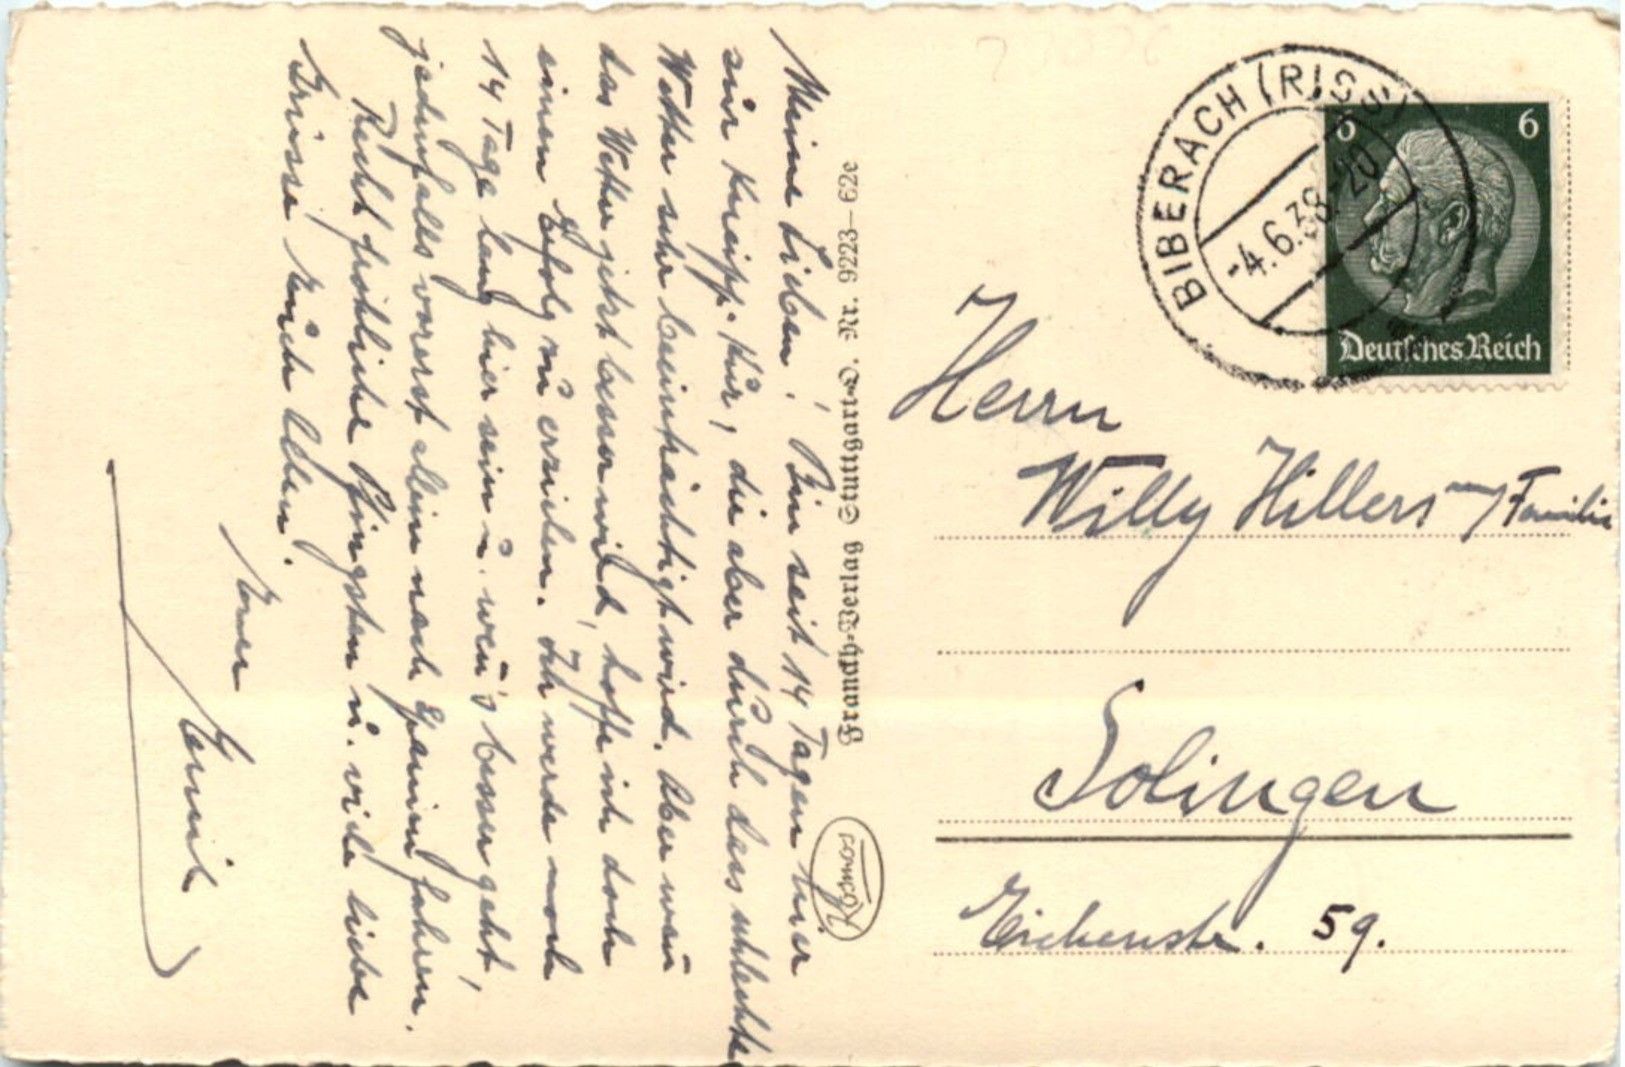 Meine Lieben! Bin seit 14 Tagen hier
zur Kneipp-Kur, die aber durch das schlechte
Wetter sehr beeinträchtigt wird. Aber wenn
das Wetter jetzt besser wird, hoffe ich doch
einen Erfolg zu erzielen. Ich werde noch
14 Tage lang hier sein u. wenn's besser geht,
jedenfalls vorerst allein nach fahren.
Recht fröhliche Pfingsten u. viele liebe
Grüsse Euch allen.
Euer
Franckh-Verlag Stuttgart-O. Nr. 9223–62e
Kosmos
BIBERACH (RISS)
-4.6.38.-20
6 6
Deutsches Reich
Herrn
Willy Hillers Familie
Solingen
Eichenstr. 59.